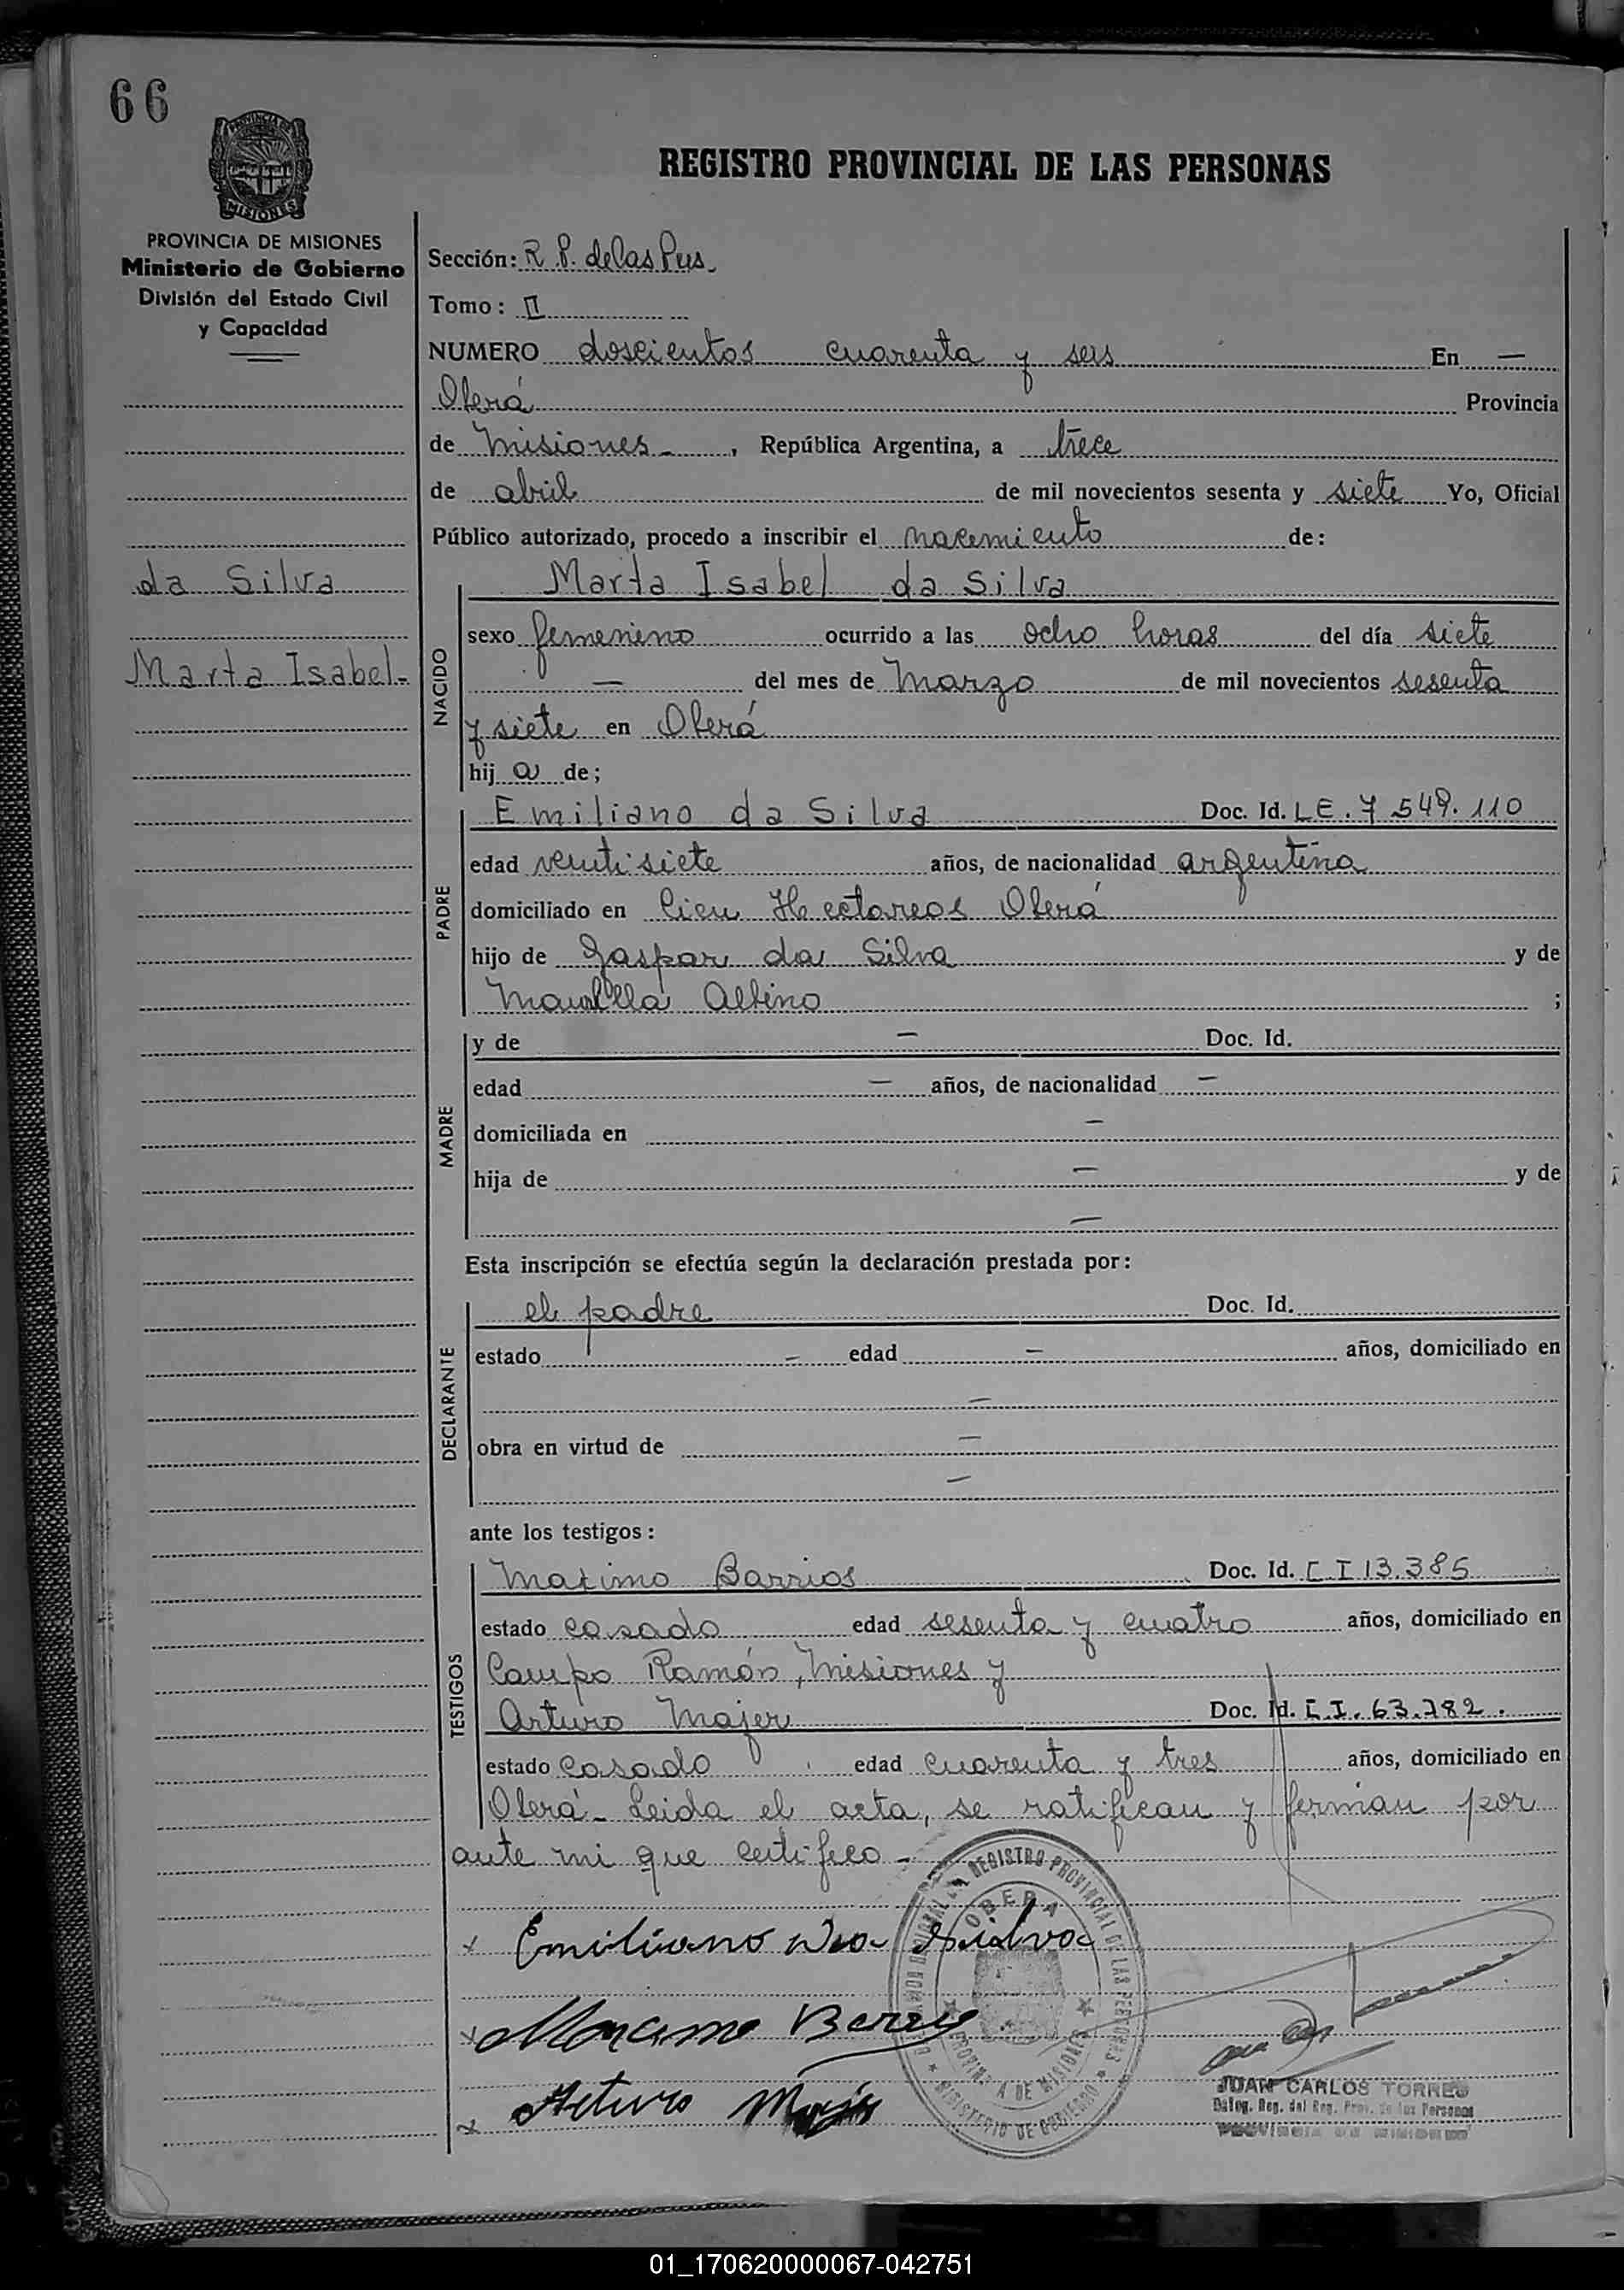 66
PROVINCIA DE
MISIONES
REGISTRO PROVINCIAL DE LAS PERSONAS
PROVINCIA DE MISIONES
Ministerio de Gobierno
División del Estado Civil
y Capacidad
Sección: R. P. de las Pers.
Tomo: II
NUMERO doscientos cuarenta y seis En —
Oberá Provincia
de Misiones -, República Argentina, a trece
de abril de mil novecientos sesenta y siete Yo, Oficial
Público autorizado, procedo a inscribir el nacimiento de:
da Silva
Marta Isabel -
NACIDO
Marta Isabel da Silva
sexo femenino ocurrido a las ocho horas del día siete
— del mes de Marzo de mil novecientos sesenta
y siete en Oberá
hij a de;
PADRE
Emiliano da Silva Doc. Id. LE. 7.549.110
edad veintisiete años, de nacionalidad argentina
domiciliado en Cien Hectareas Oberá
hijo de Gaspar da Silva y de
Albino ;
MADRE
y de — Doc. Id.
edad — años, de nacionalidad —
domiciliada en —
hija de — y de
—
Esta inscripción se efectúa según la declaración prestada por:
DECLARANTE
el padre Doc. Id.
estado — edad — años, domiciliado en
—
obra en virtud de —
—
ante los testigos:
TESTIGOS
Maximo Barrios Doc. Id. C I 13.385
estado casado edad sesenta y cuatro años, domiciliado en
Campo Ramón, Misiones y
Arturo Majer Doc. Id. C.I. 63.782.
estado casado edad cuarenta y tres años, domiciliado en
Oberá - Leida el acta, se ratifican y firman por
ante mi que certifico -
x Emiliano Da Silva
x Maximo Barrios
x Arturo
REGISTRO PROVINCIAL DE LAS PERSONAS
OBERA
PROVINCIA DE MISIONES
MINISTERIO DE GOBIERNO
JUAN CARLOS TORRES
Deleg. Reg. del Reg. Prov. de las Personas
01_170620000067-042751